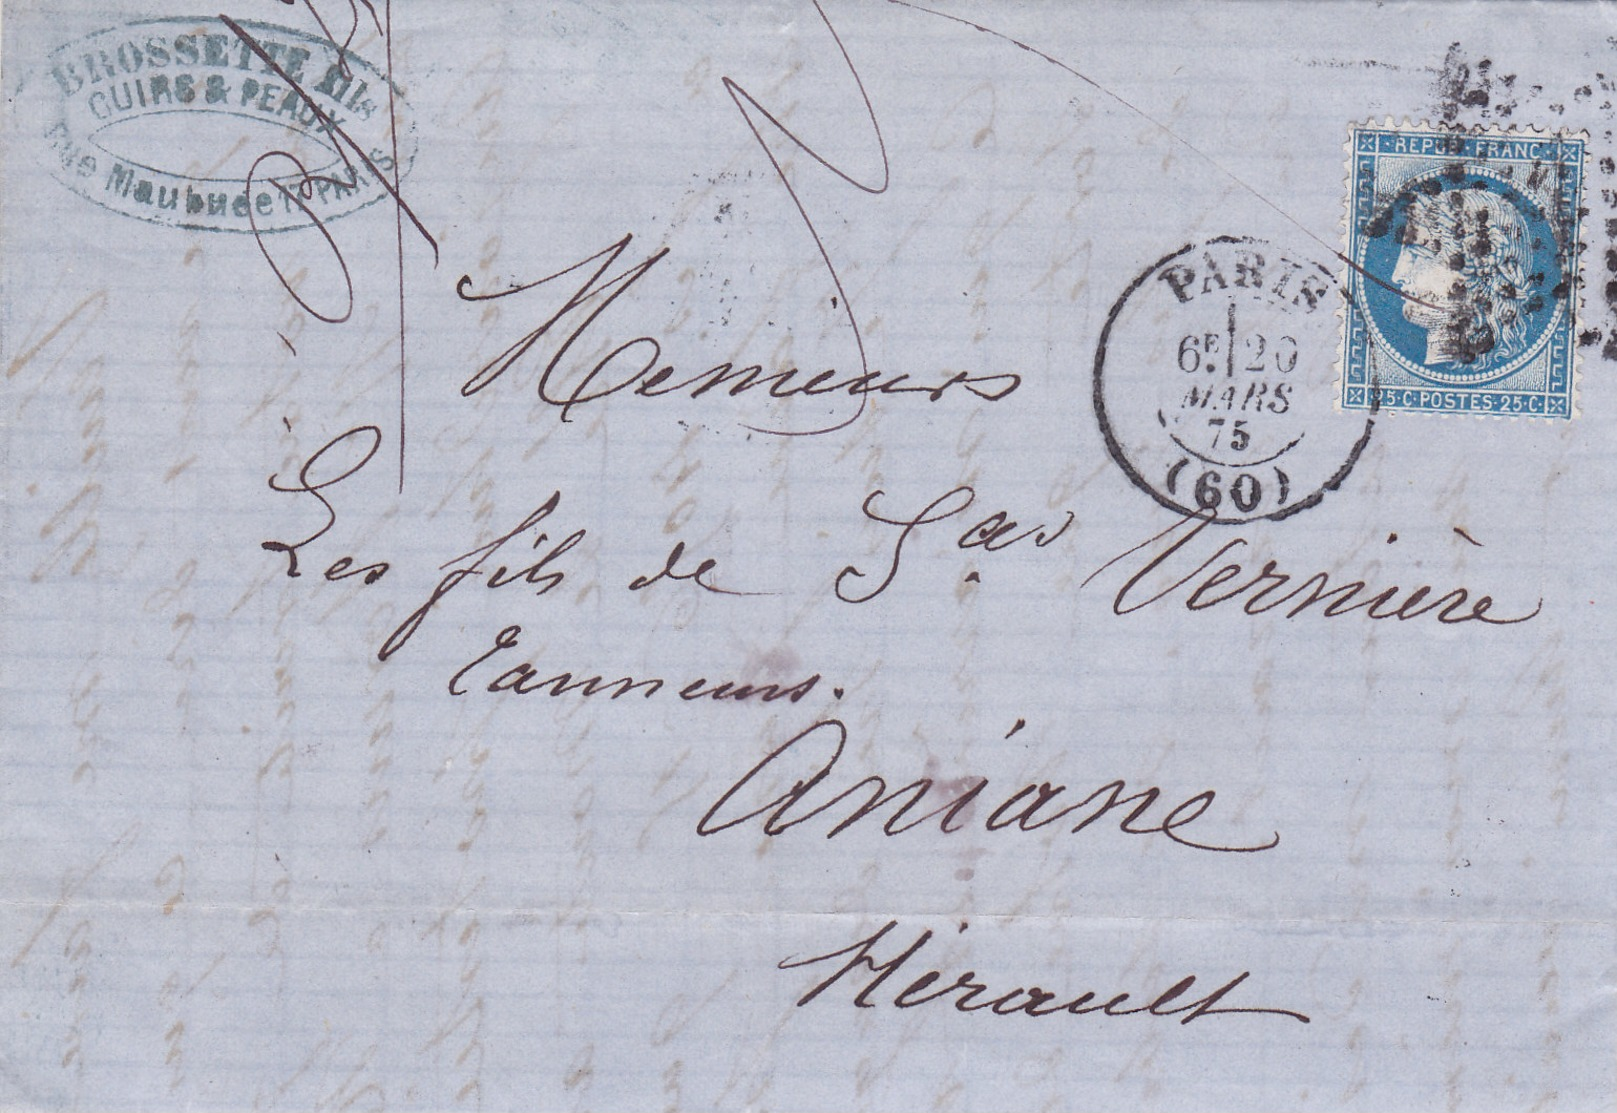 BROSSETTE fils
CUIRS & PEAUX
Rue Maubuée 17 PARIS
REPUB FRANC
25·C·POSTES·25·C
PARIS
6E 20
MARS
75
(60)
Messieurs
Les fils de Sas Vernière
Tanneurs.
Aniane
Hérault